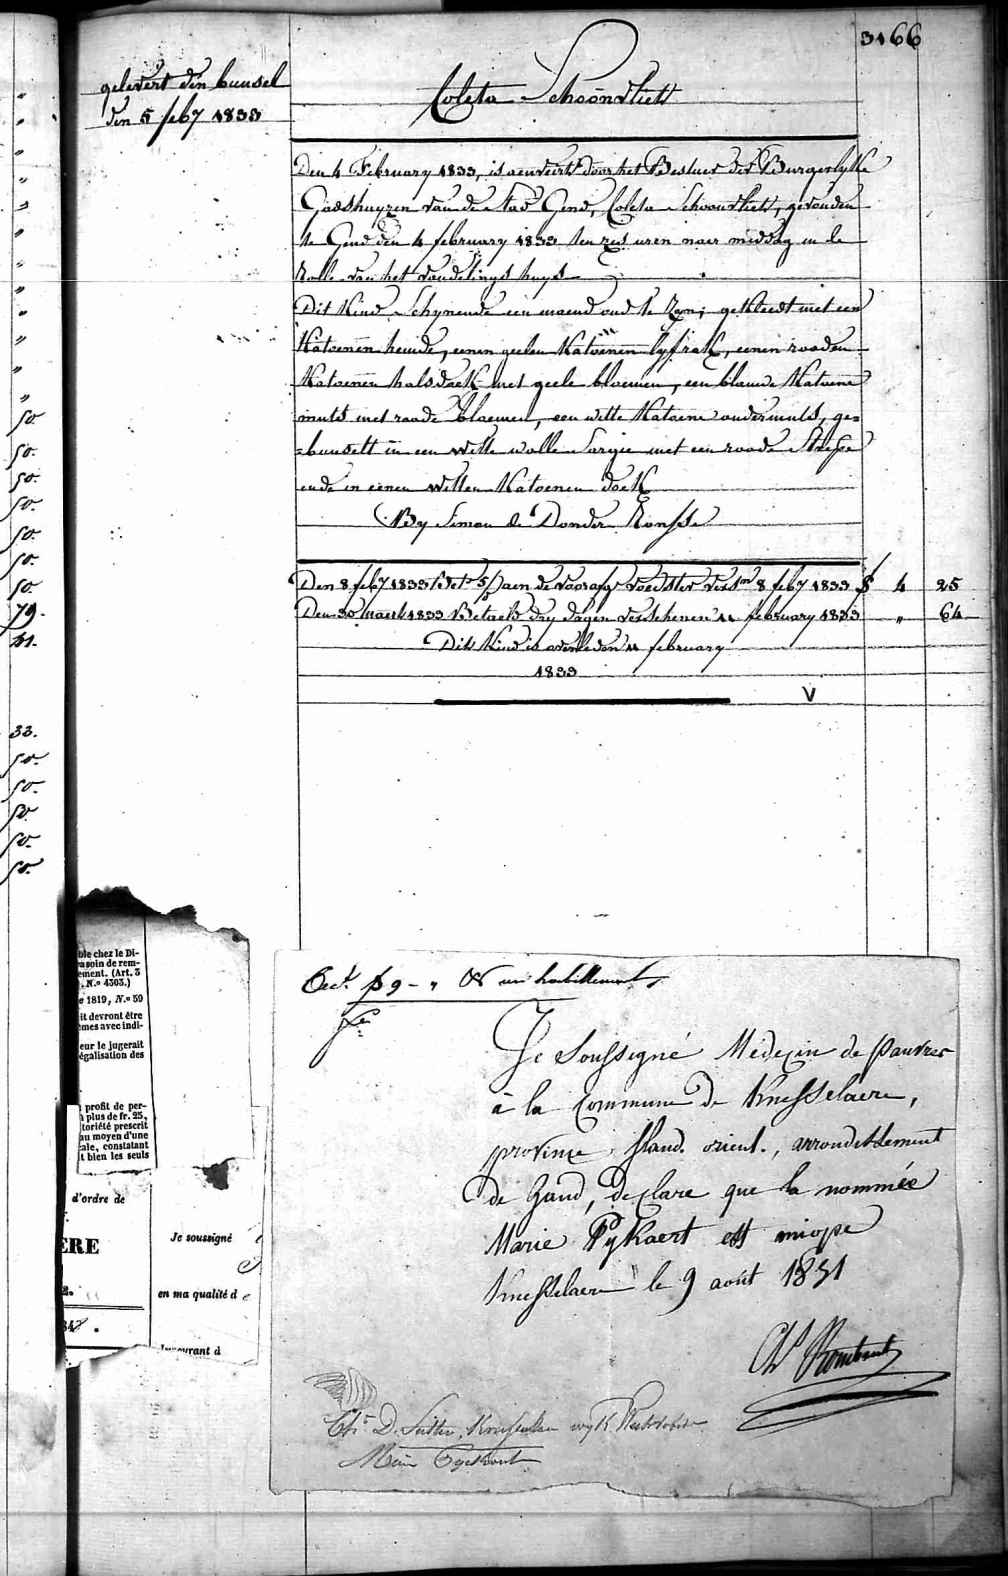 3166
gelevert den bunsel
den 5 feb7 1833
Coleta Schoonvliett
Den 4 February 1833, is aenveert door het Bestuer der Burgerlyke
Godshuyzen van de stad Gend, Coleta Schoonvliett, gevonden
te Gend den 4 february 1833 ten zes uren naer middag in de
Rolle van het vondelings huys
Dit Kind schynende een maend oud te zyn; gekleedt met een
Katoenen hemde, eenen geelen Katoenen lyfrak, eenen rooden
Katoenen halsdoek met geele bloemen, een blauwe Katoene
muts met roode bloemen, een witte Katoene ondermuts, ge=
=bunselt in een witte wolle Sargie met een roode Streepe
ende in eenen witten Katoenen doek
By Simon de Donder Ronsse
Den 8 feb7 1833 aen de voedster 8 feb7 1833 4 25
Den 30 maert 1833 Betaelt dry dagen verschenen 11 february 1833 " 64
Dit Kind is overleden 11 february
1833
V
50.
50.
50.
50.
50.
50.
50.
79.
41.
33.
50.
50.
50.
50.
50.
ble chez le Di-
soin de rem-
ement. (Art. 3
N.º 4303.)
e 1819, N.º 59
it devront être
êmes avec indi-
eur le jugerait
égalisation des
profit de per-
plus de fr. 25,
toriété prescrit
au moyen d'une
ale, constatant
t bien les seuls
d'ordre de
ERE
Je soussigné
en ma qualité d
9 - " & un habillement
Je Soussigné Médecin de pauvres
à la commune de Knesselaere,
province fland. orient., arrondissement
de Gand, declare que la nommée
Marie Pykaert est miope
Knesselaere le 9 août 1851
Ch. Rombaut
D. Sutter, wyk